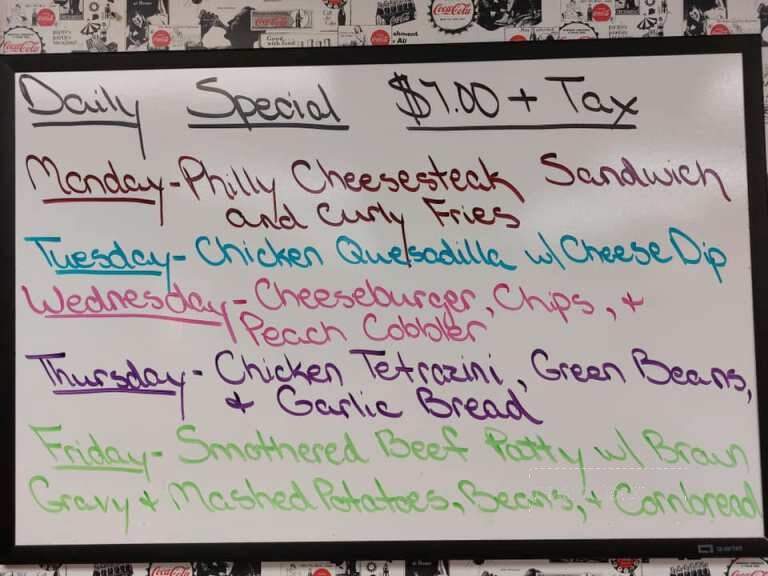 Daily Special $7.00 + Tax
Monday - Philly Cheesesteak Sandwich
and Curly Fries
Tuesday - Chicken Quesadilla w/ Cheese Dip
Wednesday - Cheeseburger, Chips, +
Peach Cobbler
Thursday - Chicken Tetrazini, Green Beans,
+ Garlic Bread
Friday - Smothered Beef Patty w/ Brown
Gravy + Mashed Potatoes, Beans, + Cornbread
quartet